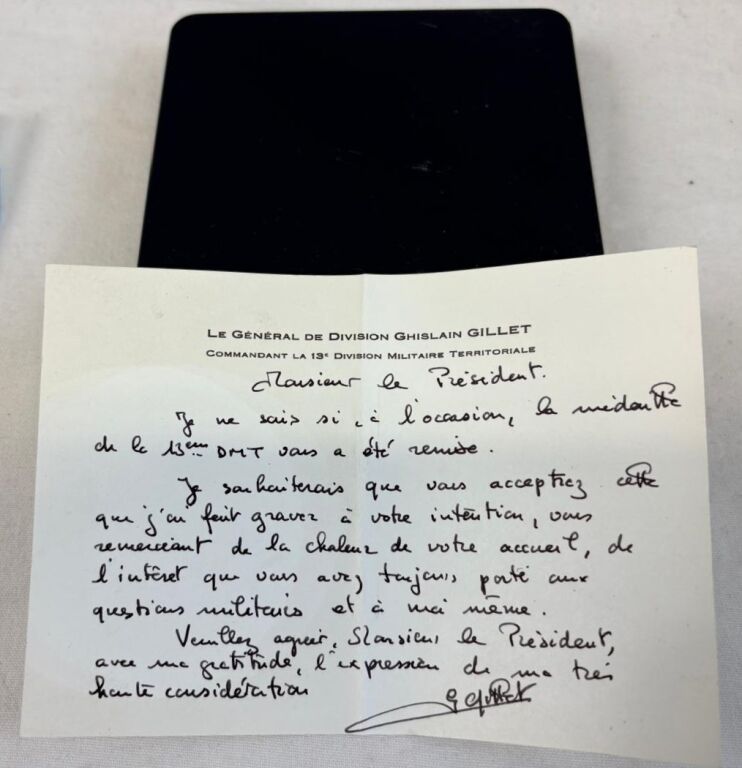 LE GÉNÉRAL DE DIVISION GHISLAIN GILLET
COMMANDANT LA 13e DIVISION MILITAIRE TERRITORIALE
Monsieur le Président.
Je ne sais si, à l'occasion, la médaille
de la 13ème DMT vous a été remise.
Je souhaiterais que vous acceptiez cette
que j'ai fait graver à votre intention, vous
remerciant de la chaleur de votre accueil, de
l'intérêt que vous avez toujours porté aux
questions militaires et à moi même.
Veuillez agréer, Monsieur le Président,
avec ma gratitude, l'expression de ma très
haute considération
G Gillet